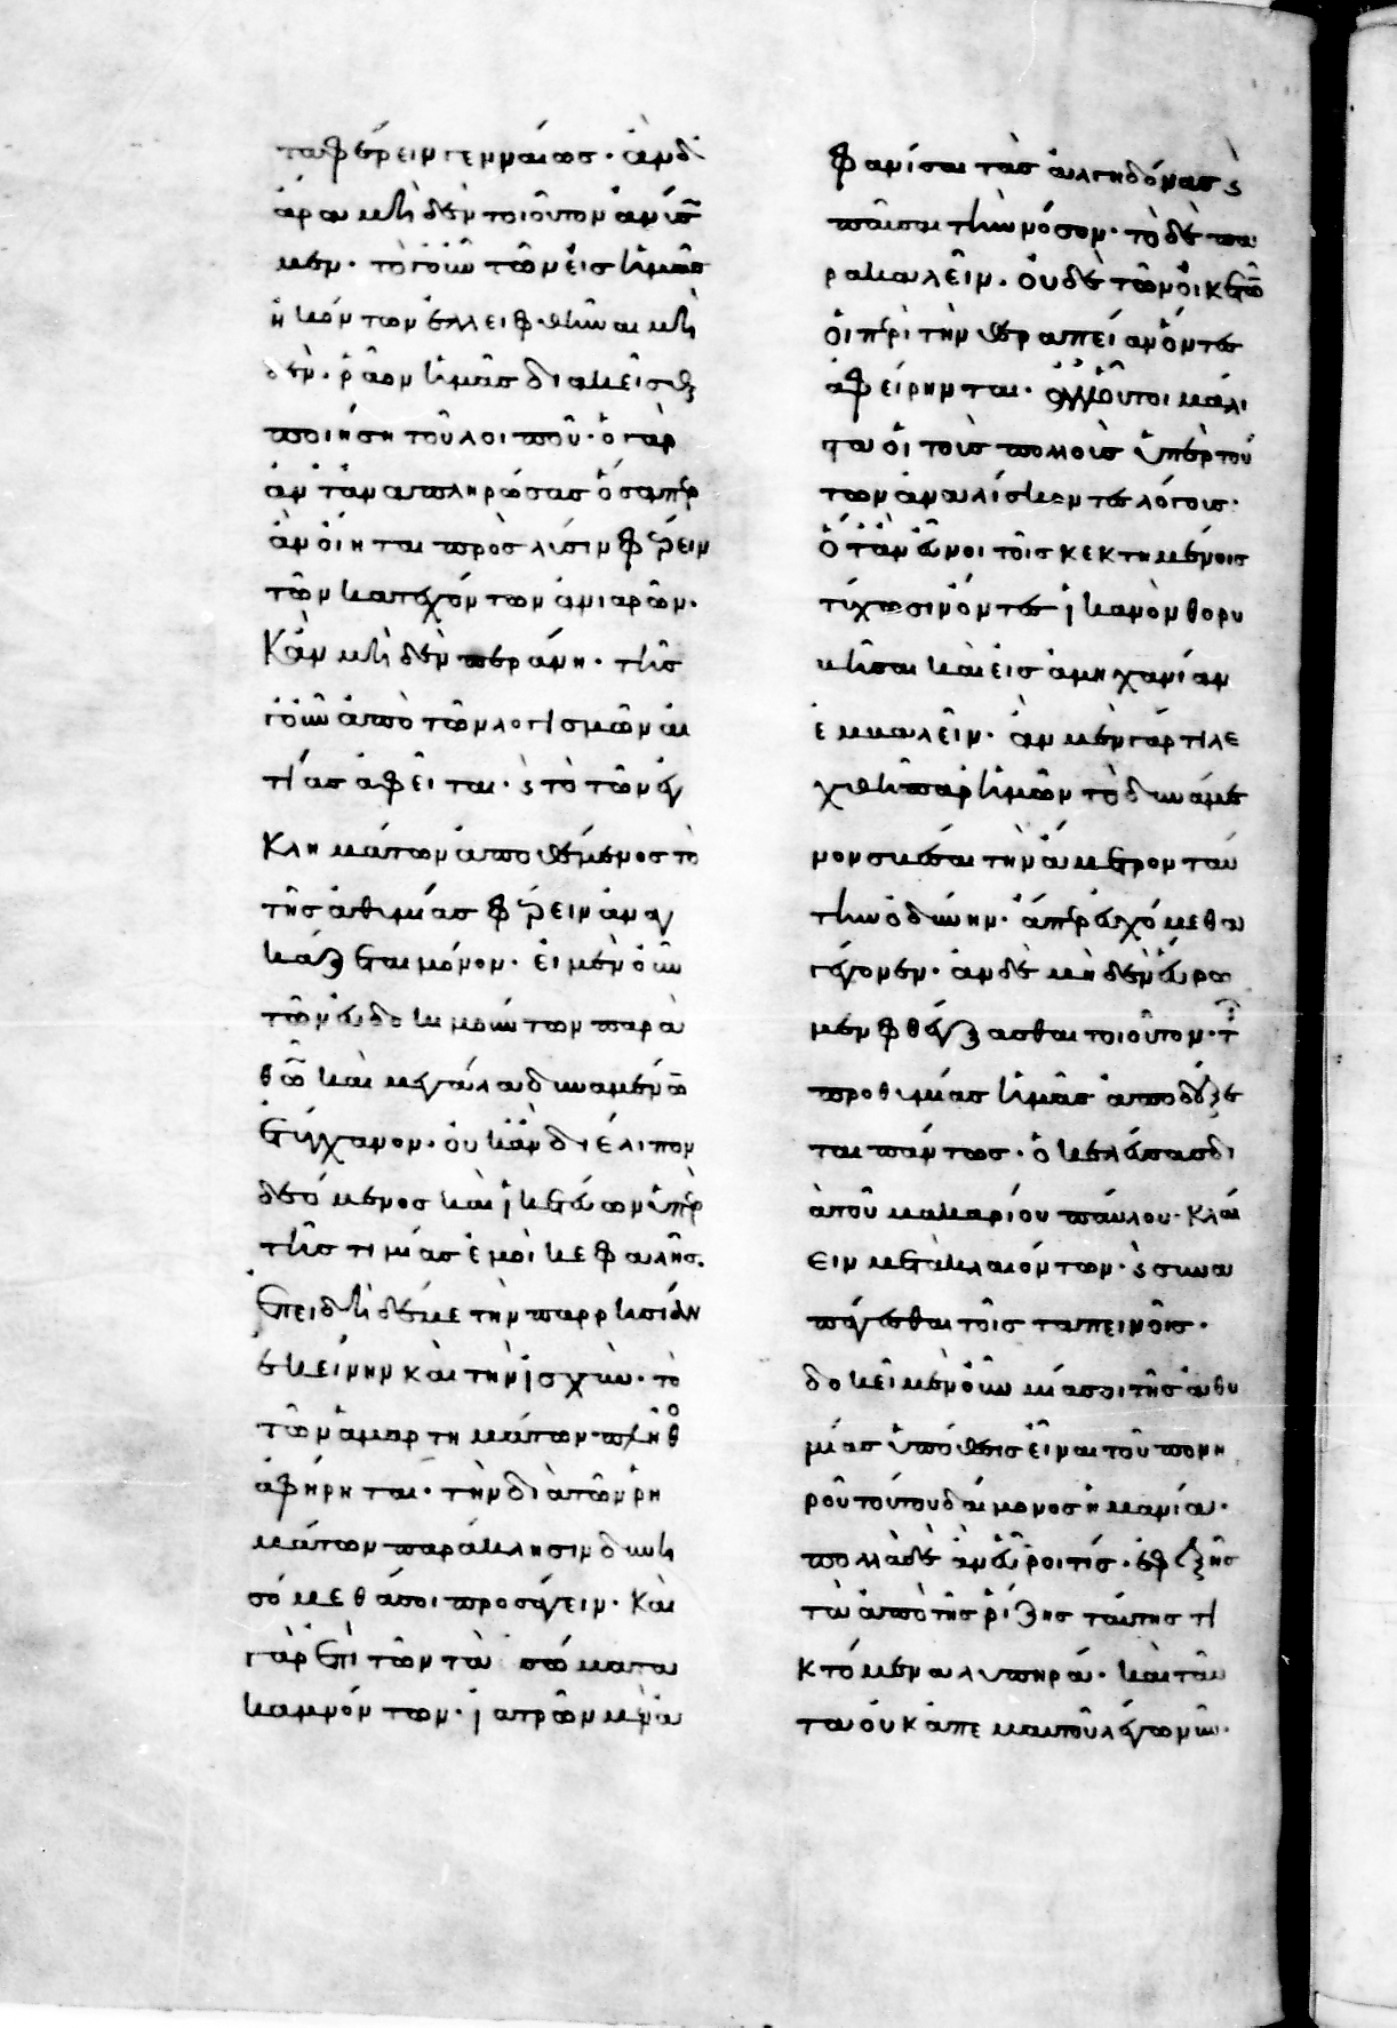 τα φέρειν γενναίως· ἂν δὲ
ἄρα μηδὲν τοιοῦτον ἀνύσω
μεν· τὸ γοῦν τῶν εἰς ἡμᾶς
ἡκόντων ἐλλειφθῆναι μη
δὲν· ῥᾶον ἡμᾶς διακεῖσθαι
ποιήση τοῦ λοιποῦ· ὁ γὰρ
ἅπαν τα ἀποπληρώσας ὅσαπερ
ἂν οἴηται πρὸς λύσιν φέρειν
τῶν κατεχόντων ἀνιαρῶν·
Κἂν μηδὲν περάνη· τῆς
γοῦν ἀπὸ τῶν λογισμῶν αἰ
τίας ἀφεῖται· καὶ τὸ τῶν ἐγ
κλημάτων ἀποθέμενος τὸ
τῆς ἀθυμίας φέρειν ἀναγ
κάζεται μόνον· εἰ μὲν οὖν
τῶν εὐδοκιμούντων παρὰ
θεῶ καὶ μεγάλα δυναμένων
ἐτύγχανον· οὐκ ἂν διέλιπον
δεόμενος καὶ ἱκετεύων ὑπὲρ
τῆς τιμίας ἐμοὶ κεφαλῆς·
Ἐπειδὴ δέ με τὴν παρρησίαν
ἐκείνην καὶ τὴν ἰσχὺν· τὸ
τῶν ἁμαρτημάτων πλῆθος
ἀφήρηται· τὴν διὰ τῶν ῥη
μάτων παράκλησιν δυνη
σόμεθά σοι προσάγειν· Καὶ
γὰρ ἐπὶ τῶν τὰ σώματα
καμνόντων· ἰατρῶν μὲν ἀ
φανίσαι τὰς ἀλγηδόνας καὶ
παῦσαι τὴν νόσον· τὸ δὲ πα
ρακαλεῖν· οὐδὲ τῶν οἰκετῶν
οἱ περὶ τὴν θεραπείαν ὄντες
ἀφείρηνται· ἀλλ' οὗτοι μάλι
στα οἱ τοῖς πολλοῖς ὑπὲρ τού
των ἀναλίσκοντες λόγοις·
Ὅταν εὖνοι τοῖς κεκτημένοις
τύχωσιν ὄντες ἱκανὸν θορυ
κῆσαι καὶ εἰς ἀμηχανίαν
ἐμκαλεῖν· ἂν μὲν γάρ τι λε
χθῆ παρ' ἡμῶν τὸ δυνάμε
νον σβέσαι τὴν ἄμετρον ταύ
την ὀδύνην· ἅπερ εὐχόμεθα
γέγονεν· ἂν δὲ μηδὲν εὕρω
μεν φθέγξασθαι τοιοῦτον· τῆς
προθυμίας ἡμᾶς ἀποδέξε
ται πάντως· ὁ κελεύσας δι
ὰ τοῦ μακαρίου παύλου· Κλαί
ειν μετὰ κλαιόντων· καὶ συνα
πάγεσθαι τοῖς ταπεινοῖς·
δοκεῖ μὲν οὖν μία σοι τῆς ἀθυ
μίας ὑπόθεσις εἶναι τοῦ πονη
ροῦ τούτου δαίμονος ἡ μανία·
πολλὰ δὲ ἂν εὕροι τίς· ἐφεξῆς
τὰ ἀπὸ τῆς ῥίζης ταύτης τι
κτόμενα λυπηρά· καὶ ταῦ
τα οὐκ ἀπ' ἐμαυτοῦ λέγω νῦν·